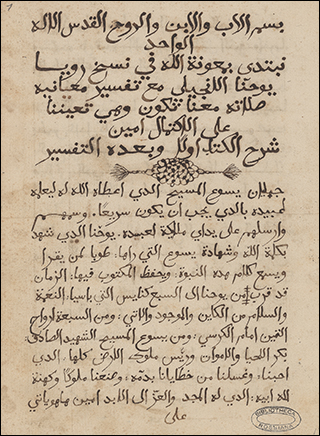 1
بسم الاب والابن والروح القدس الاله
الواحد
نبتدي بمعونة الله في نسخ رويا
يوحنا اللنجيلي مع تفسير معانيه
صلاته معنا تكون وهي تعيننا
على اللكمال امين
شرح الكتاب اولا وبعده التفسير
جليان يسوع المسيح الدي اعطاه الله له ليعلم
لعبيده بالدي يجب ان يكون سريعًا. وسيهم
وارسلهم على يدي ملاكه لعبيده يوحنا الدي شهد
بكلمة الله وشهادة يسوع التي راها. طوبا لمن يقرا
ويسمع كلام هده النبوة. ويحفظ المكتوب فيها. الزمان
قد قرب من يوحنا الى السبع كنايس التي باسيا. النعمة
والسلام من الكاين والموجود والاتي. ومن السبعة ارواح
التي امام الكرسي. ومن يسوع المسيح الشهيد الصادق
بكر الحيا والاموات وريس ملوك الارض كلها. الدي
احبنا. وغسلنا من خطايانا بدمه. وصنعنا ملوكًا وكهنة
لله ابيه. الدي له المجد. والعز الى اللبد امين
على
BIBLIOTHECA
ROSSIANA